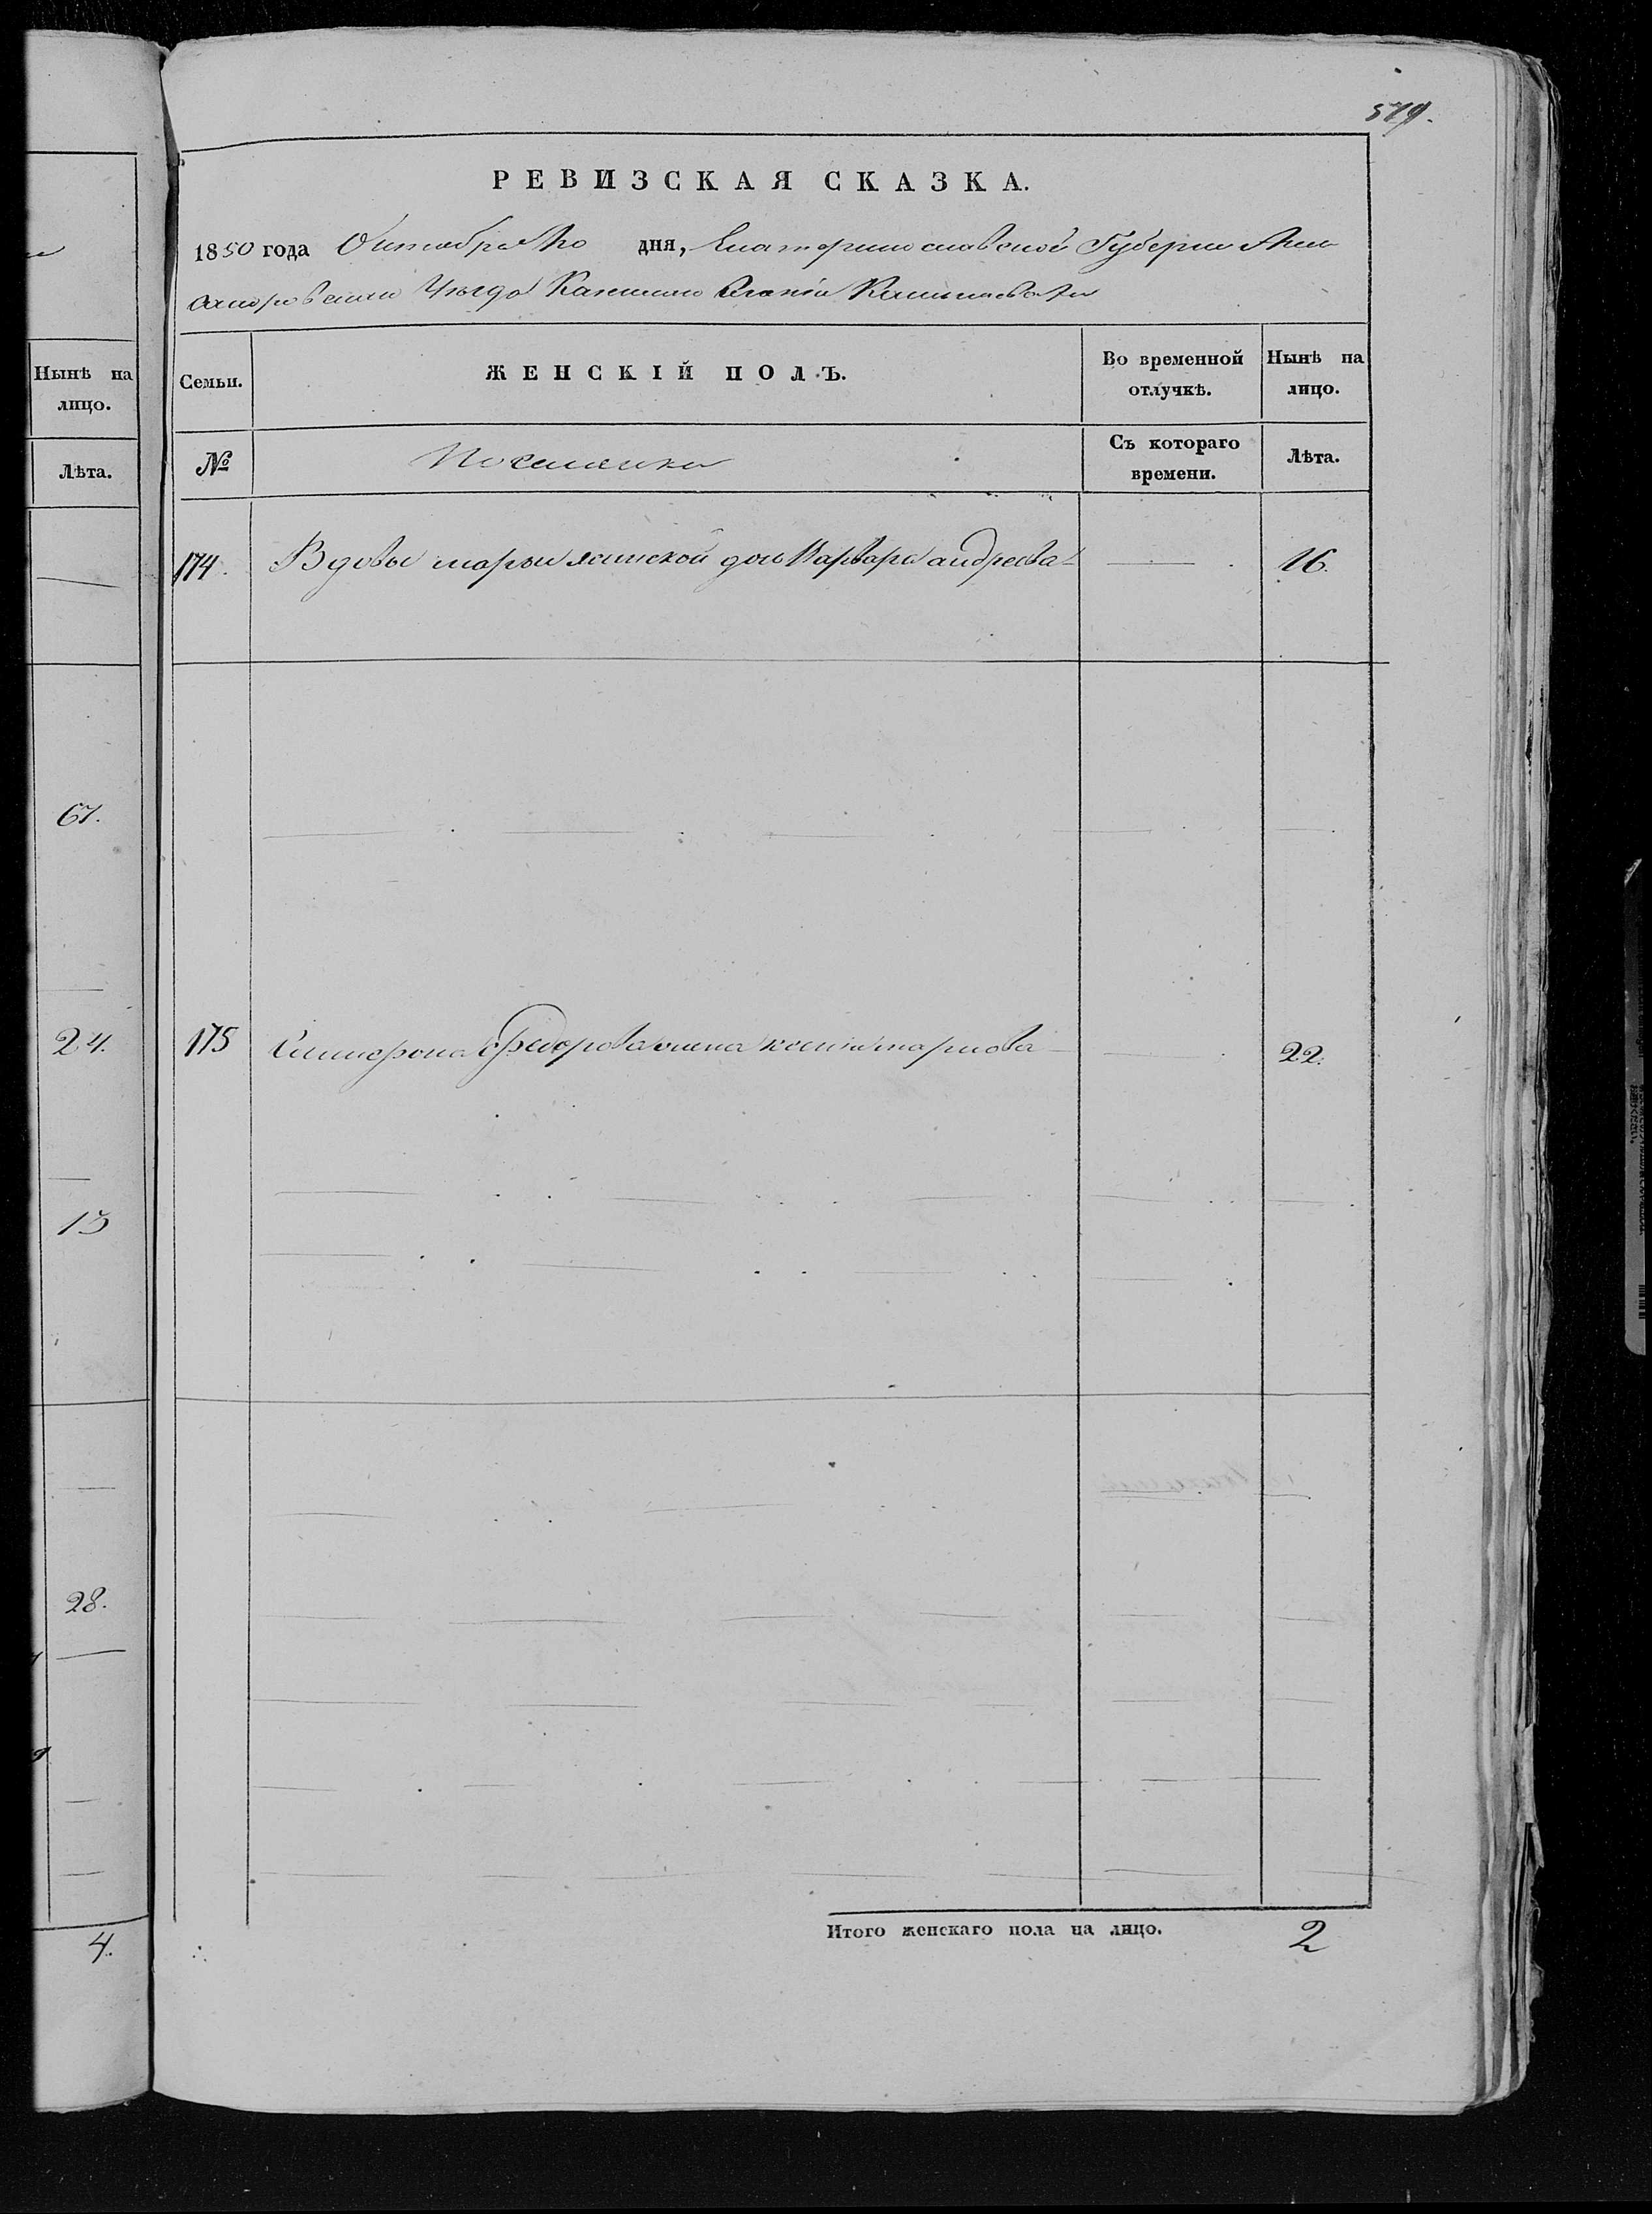 Нынѣ на
лицо.
Лѣта.
67.
24.
13
28.
4.
579.
РЕВИЗСКАЯ СКАЗКА.
1850 года Октября дня, Екатеринославской Губерни Алек
сандровскаго Уѣзда Казеннаго Селенія
Семьи.
ЖЕНСКІЙ ПОЛЪ.
Во временной отлучкѣ.
Нынѣ на лицо.
№
Поселянки
Съ котораго времени.
Лѣта.
174. Вдовы марьи дочь Варвара андреева 16.
175 Федорова жена маркова 22.
Итого женскаго пола на лицо. 2